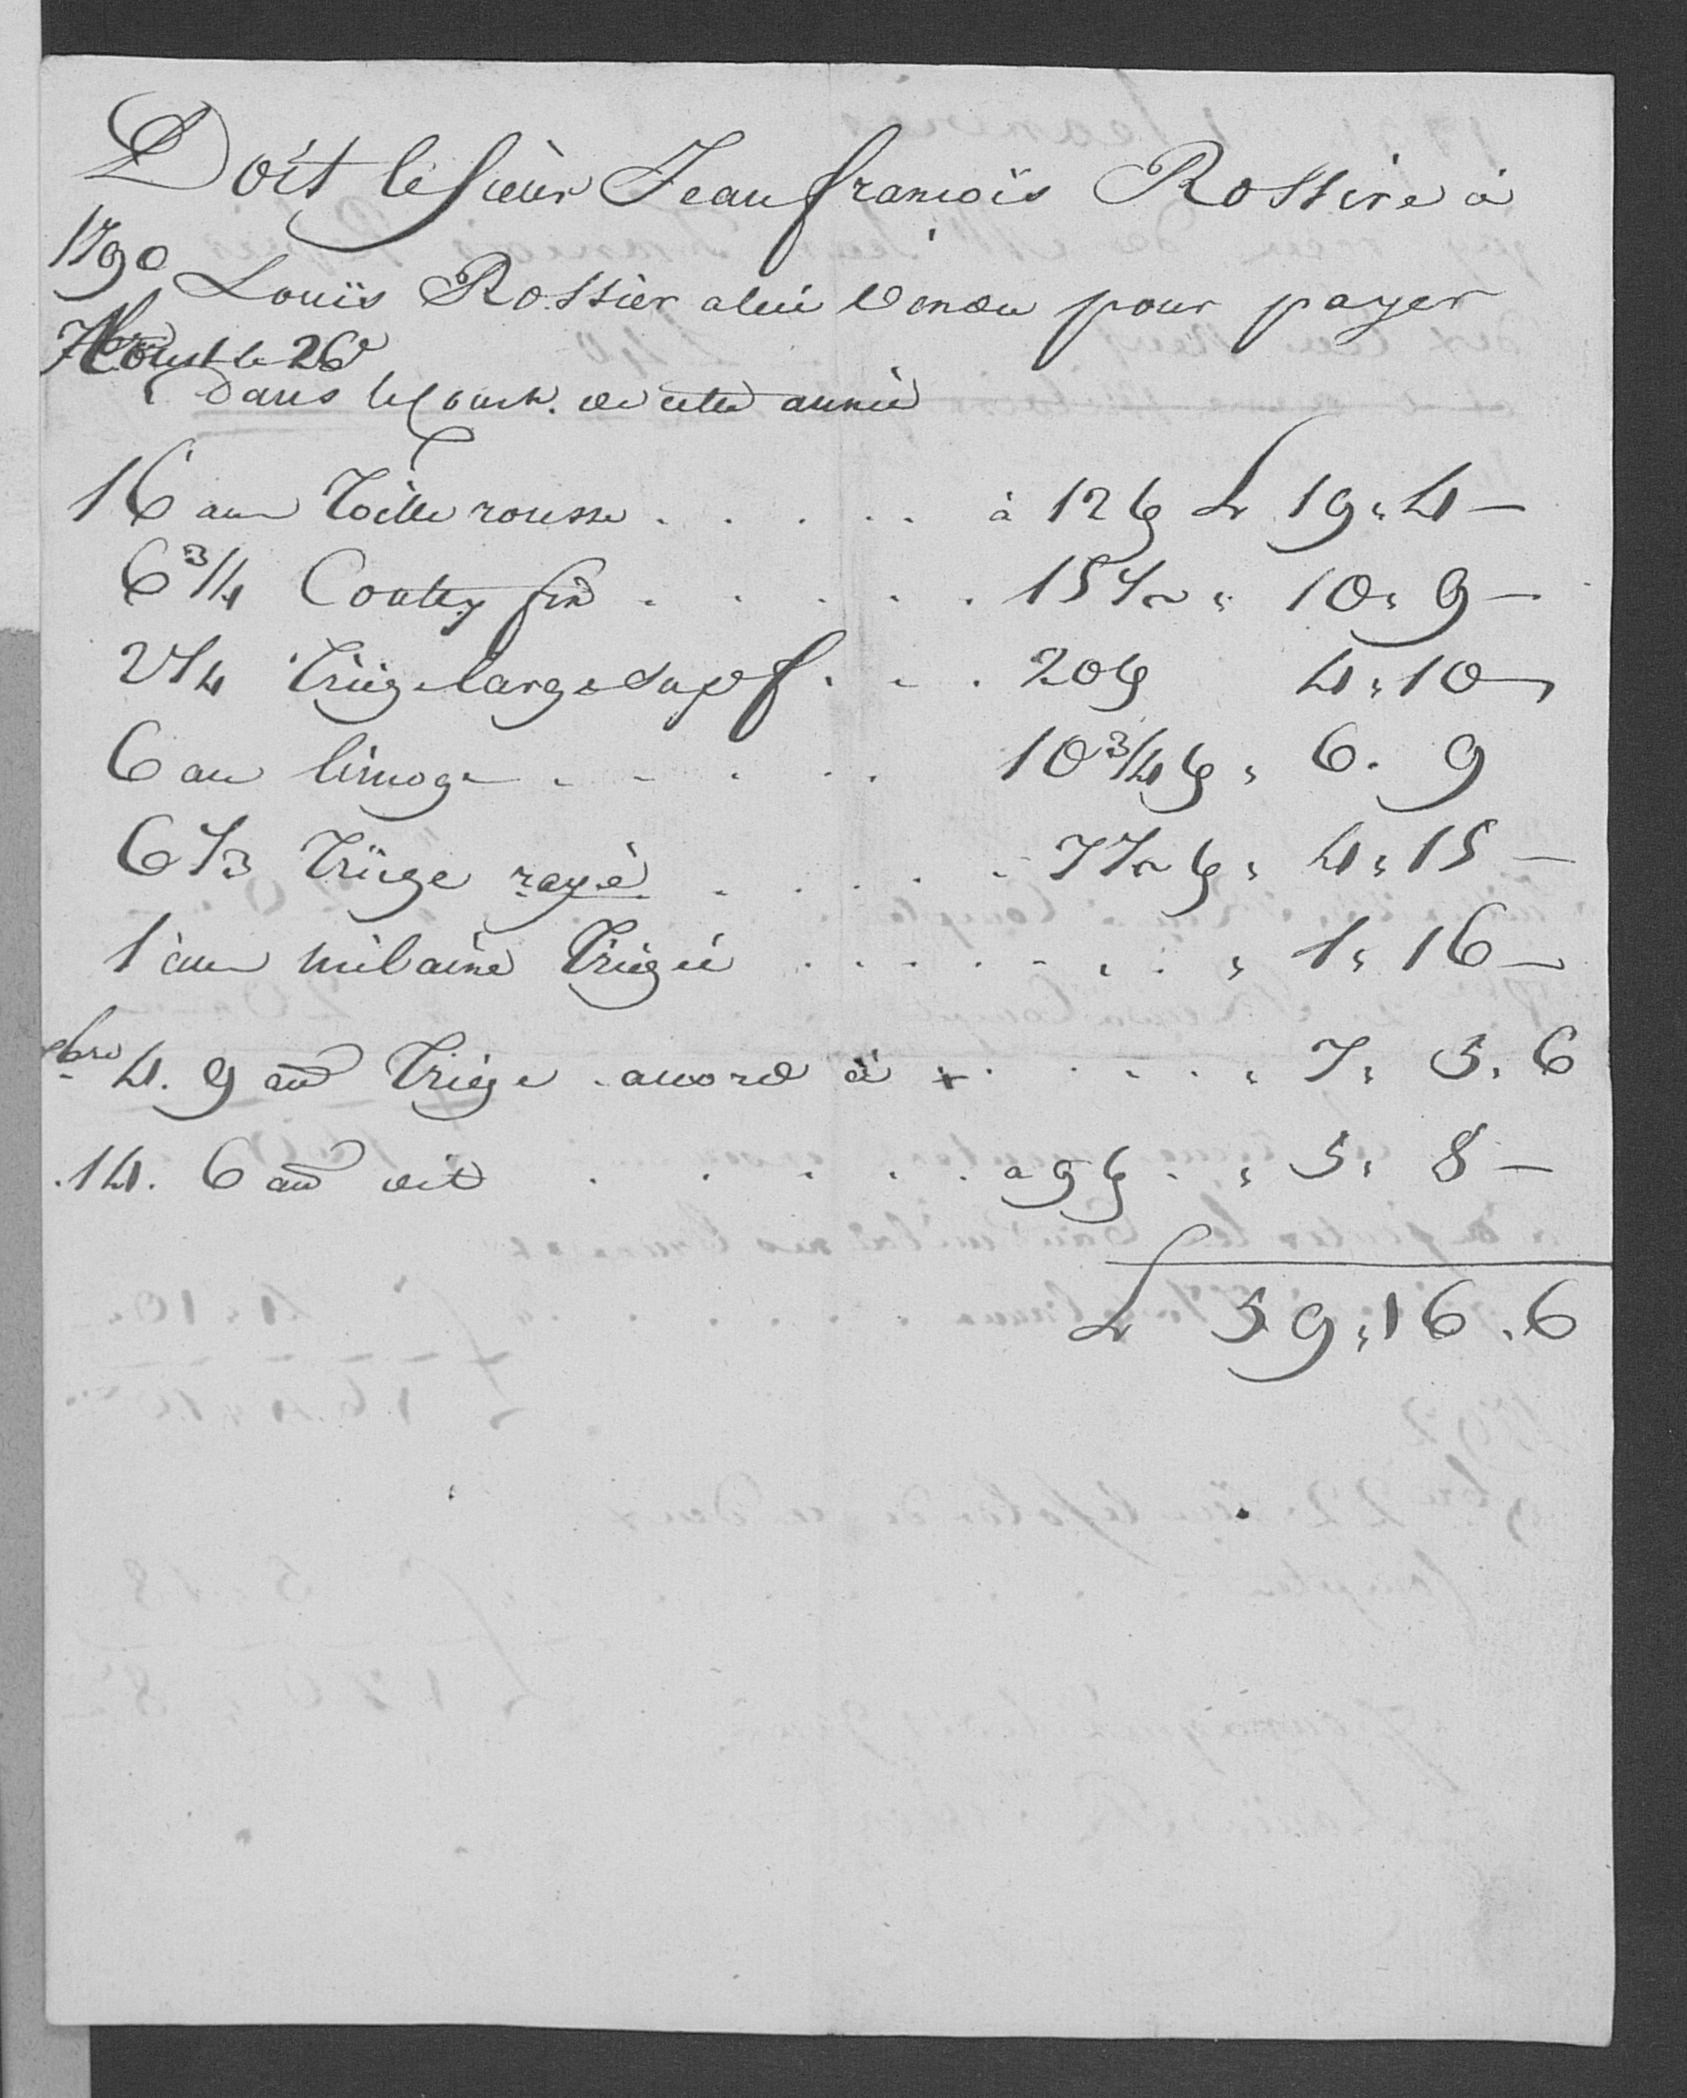 Doit le Sieur Jean françois Rossire à
1790 Louis Rossier a lui Vendu pour payer
7bre le 26
dans le Cour. de cette année
16 aun Toille rousse . . . . . à 12 ß L 19 : 4 —
6 3/4 Coutey fin . . . . . 15 1/2 " 10 : 9 —
2 1/4 Triige large sup f . . . 20 ß 4 : 10 —
6 au limoge . . . . . 10 3/4 ß " 6 . 9
6 1/3 Triige rayé . . . . . 7 1/2 ß " 4 : 15 —
1 aun milaine Triigée . . . . . . . " 1 : 16 —
bre 4 . 9 au Triige . acord à x . . . . " 7 : 5 . 6
. 14 . 6 au dit . . . . . a 9 ß . " 5 : 8 —
L 59 : 16 . 6